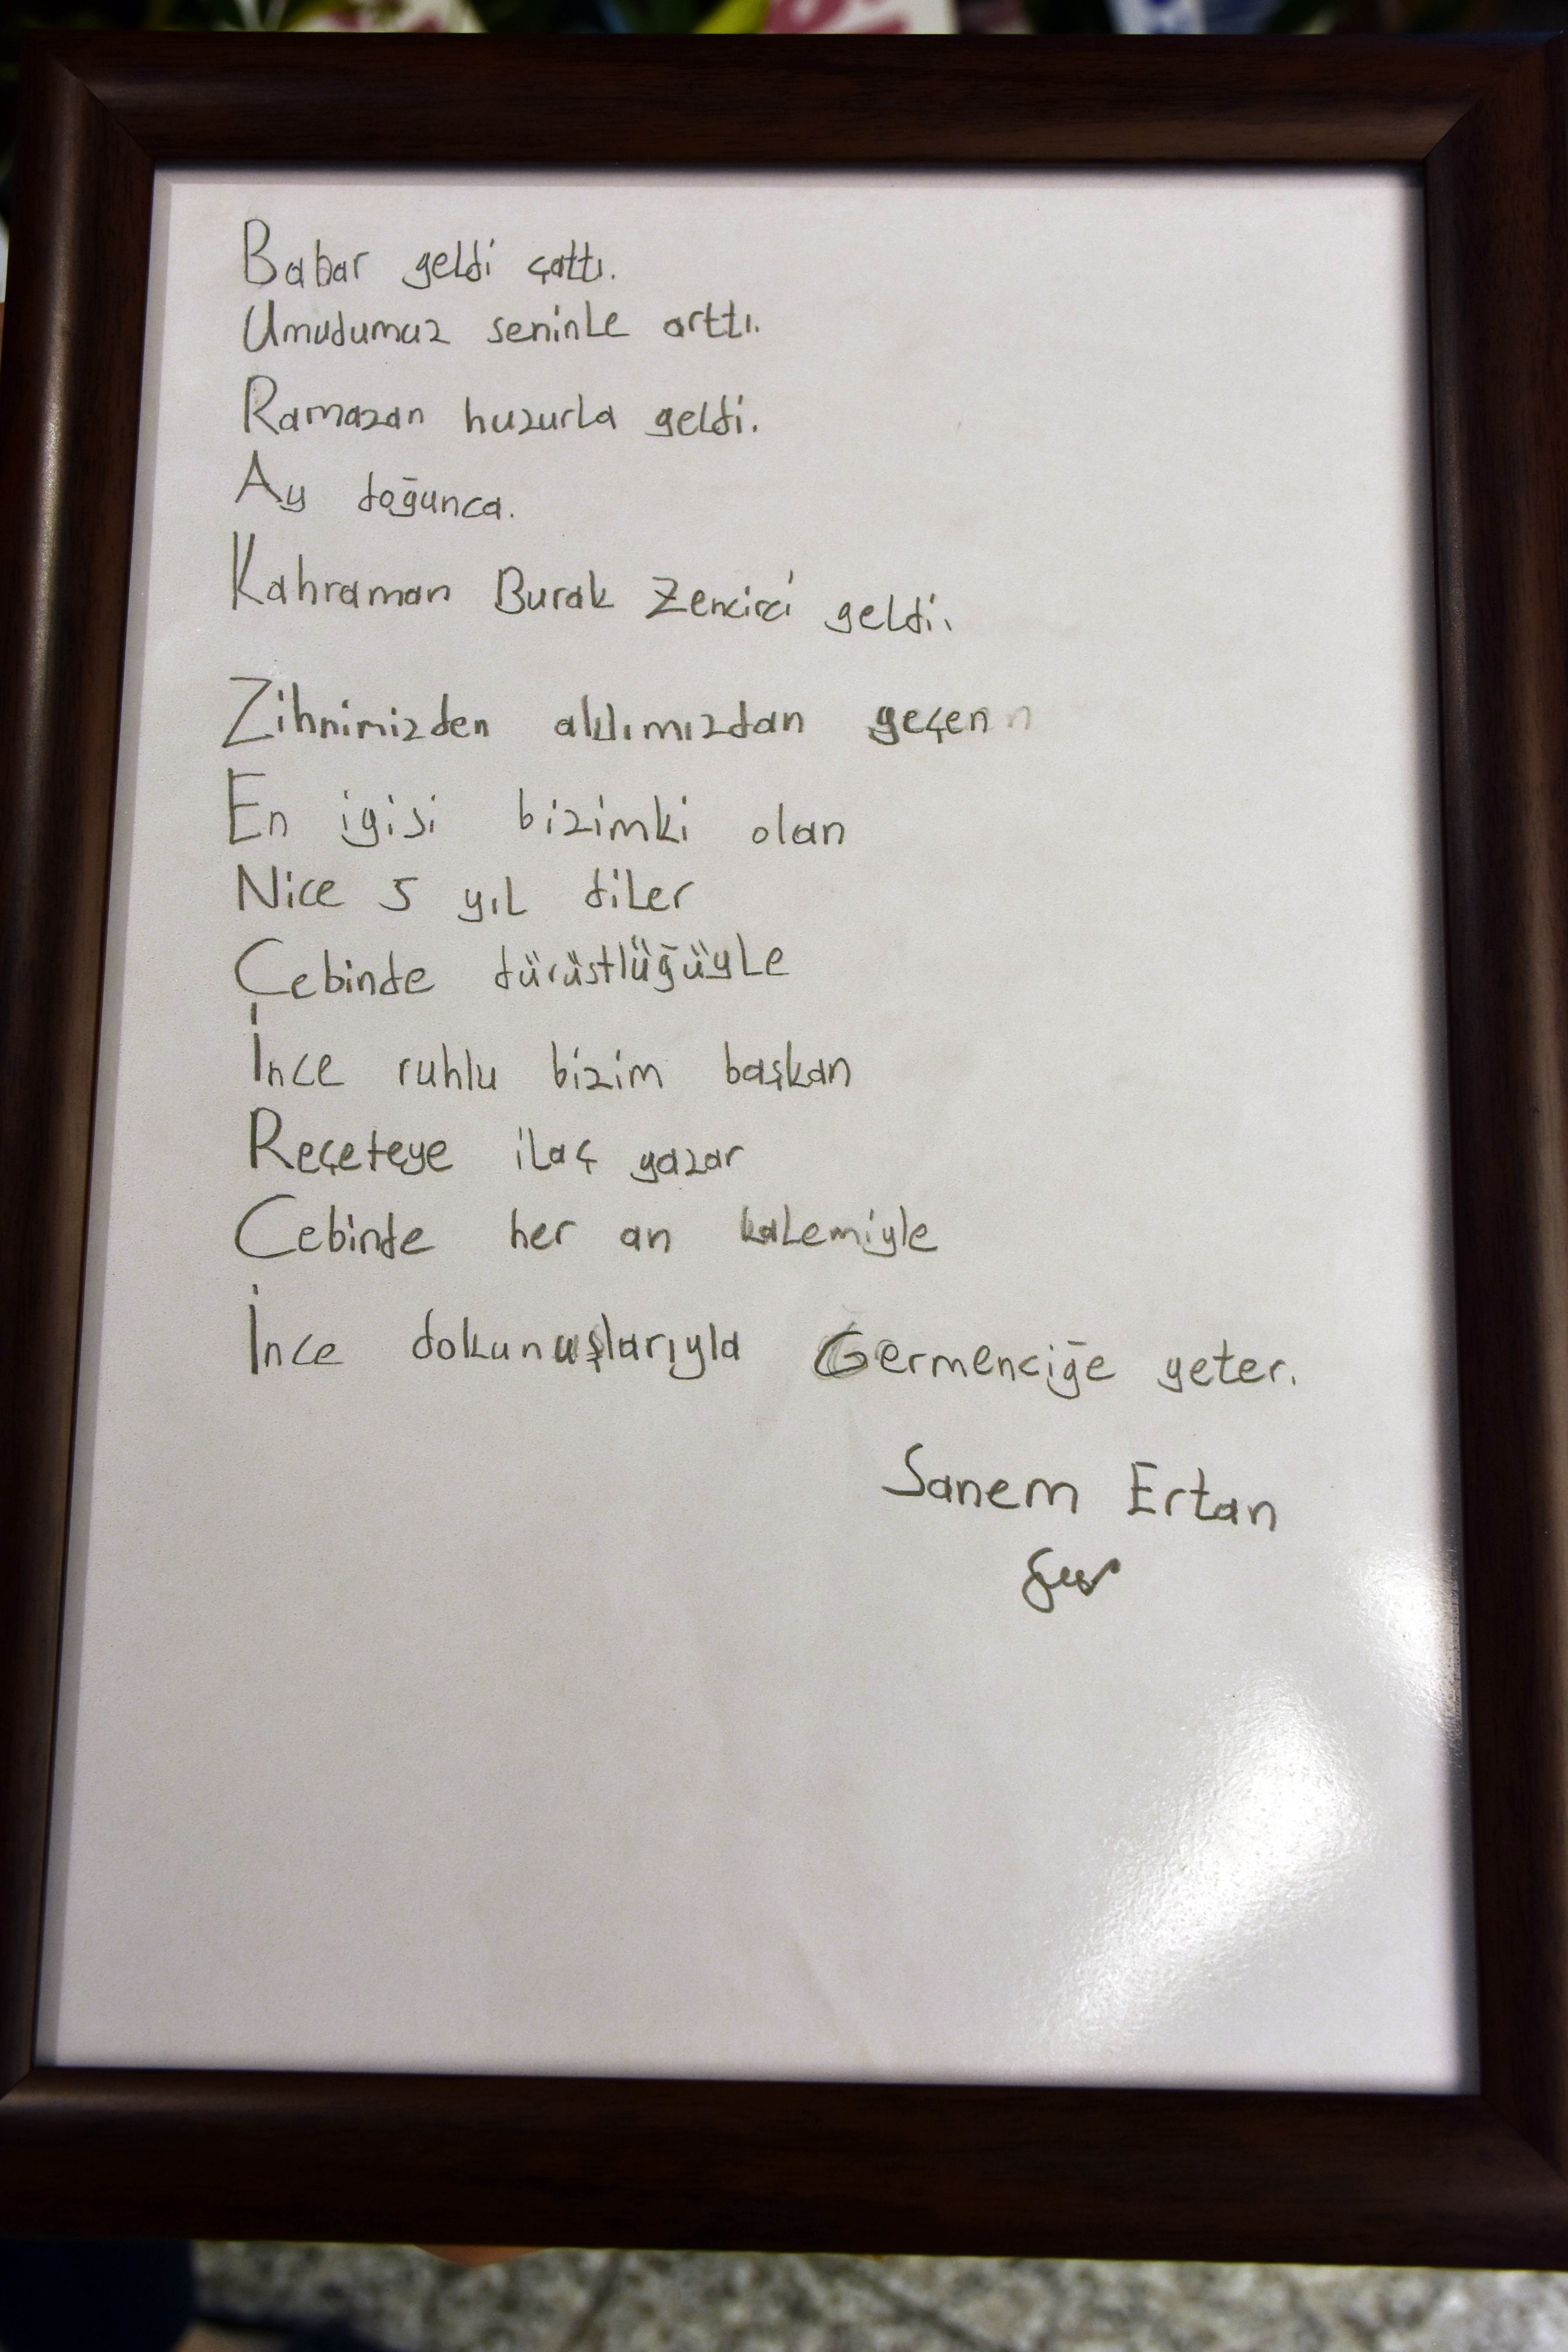 Bahar geldi çattı.
Umudumuz seninle arttı.
Ramazan huzurla geldi.
Ay doğunca.
Kahraman Burak Zencirci geldi.
Zihnimizden aklımızdan geçen
En iyisi bizimki olan
Nice 5 yıl diler
Cebinde dürüstlüğüyle
İnce ruhlu bizim başkan
Reçeteye ilaç yazar
Cebinde her an kalemiyle
İnce dokunuşlarıyla Germenciğe yeter.
Sanem Ertan